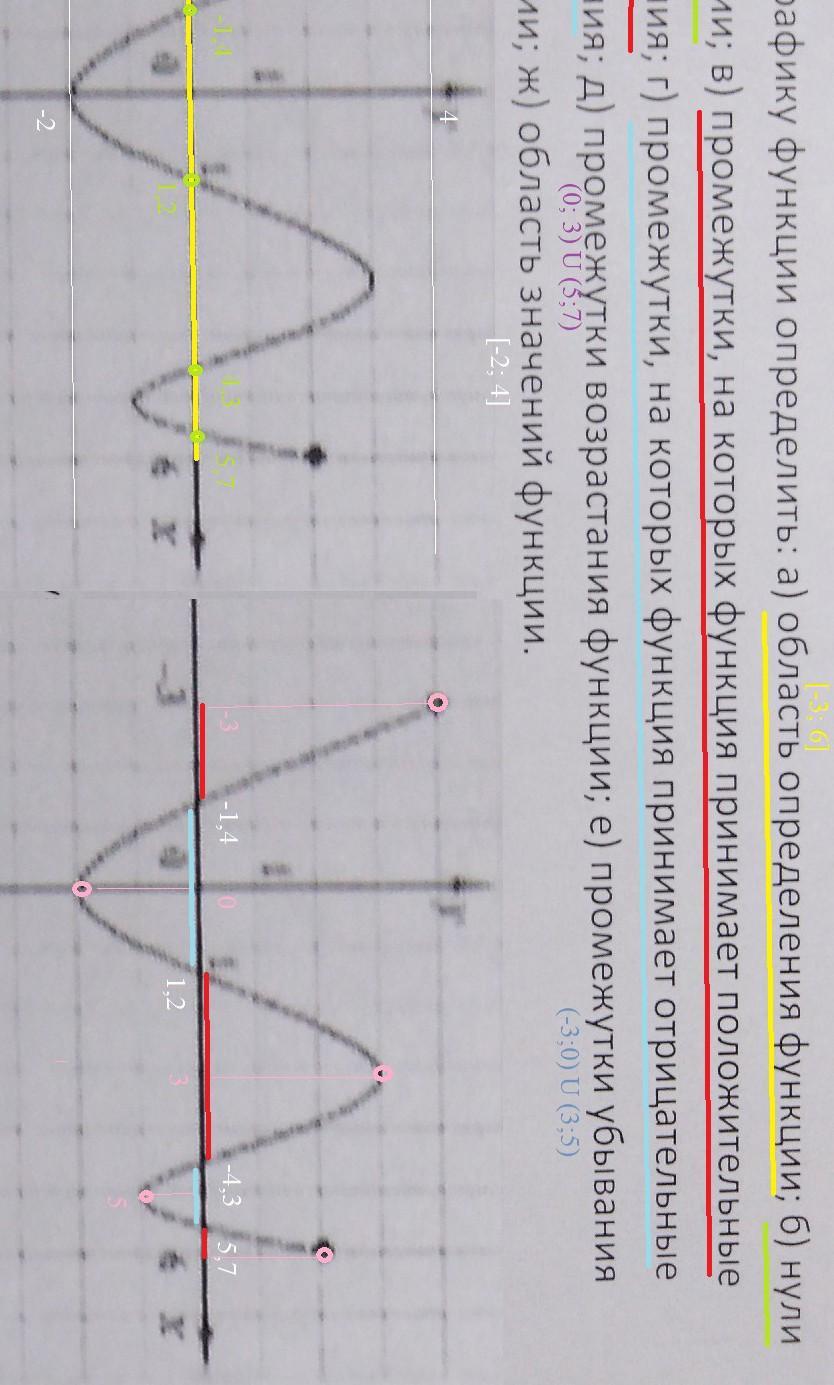 [-3; 6]
рафику функции определить: а) область определения функции; б) нули
ии; в) промежутки, на которых функция принимает положительные
ия; г) промежутки, на которых функция принимает отрицательные
ия; д) промежутки возрастания функции; е) промежутки убывания
(0; 3) U (5;7)
(-3;0) U (3;5)
ии; ж) область значений функции.
[-2; 4]
4
-1,4
0
-2
1,2
4,3
5,7
6
x
-3
-3
-1,4
0
0
y
1,2
3
-4,3
5
5,7
6
x